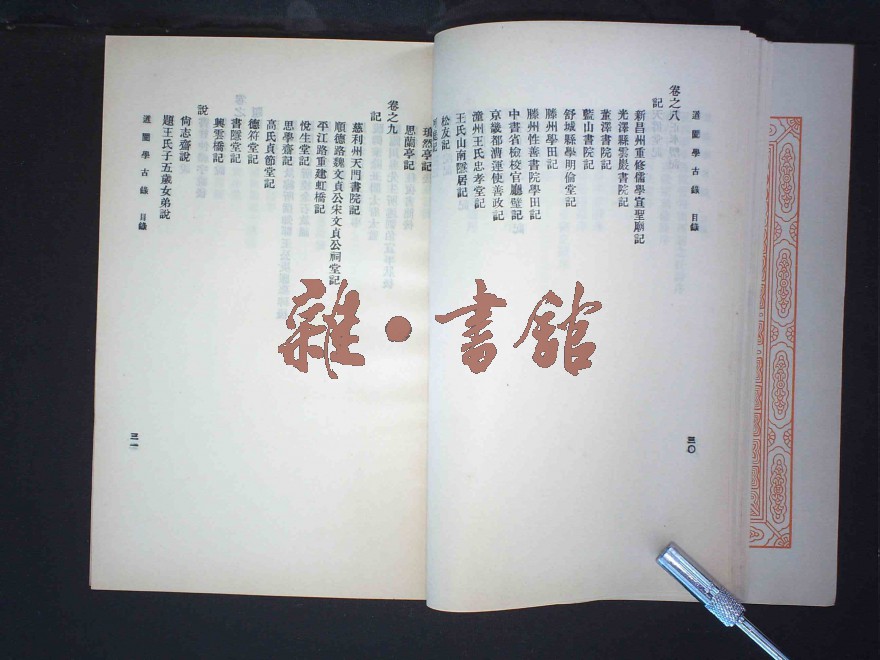 道園學古錄 目錄
三〇
卷之八
記
新昌州重修儒學宣聖廟記
光澤縣雲巖書院記
董澤書院記
藍山書院記
舒城縣學明倫堂記
滕州學田記
滕州性善書院學田記
中書省檢校官廳壁記
京畿都漕運使善政記
潼州王氏忠孝堂記
王氏山南隱居記
松友記
瑛然亭記
思蘭亭記
卷之九
記
慈利州天門書院記
順德路魏文貞公宋文貞公祠堂記
平江路重建虹橋記
悅生堂記
思學齋記
高氏貞節堂記
德符堂記
書隱堂記
興雲橋記
說
尚志齋說
題王氏子五歲女弟說
道園學古錄 目錄
三一
雜·書館